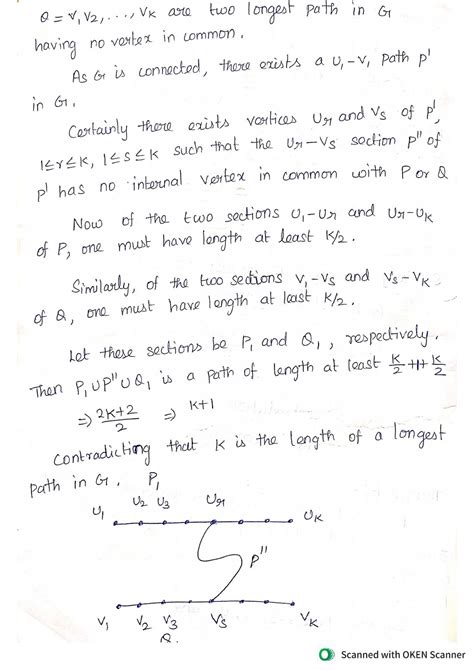 Q = v₁, v₂, . . . . , vₖ are two longest path in G
having no vertex in common.
As G is connected, there exists a u₁-v₁ path p'
in G.
Certainly there exists vertices uᵣ and vₛ of p',
1≤r≤k, 1≤s≤k such that the uᵣ-vₛ section p" of
p' has no internal vertex in common with P or Q
Now of the two sections u₁-uᵣ and uᵣ-uₖ
of P, one must have length at least k/2.
Similarly, of the two sections v₁-vₛ and vₛ-vₖ
of Q, one must have length at least k/2.
Let these sections be P₁ and Q₁, respectively.
Then P₁∪P"∪Q₁ is a path of length at least k/2+1+k/2
⇒ 2k+2/2 ⇒ k+1
Contradicting that k is the length of a longest
path in G.
P₁
u₁ u₂ u₃ uᵣ uₖ
p"
v₁ v₂ v₃ vₛ vₖ
Q.
Scanned with OKEN Scanner